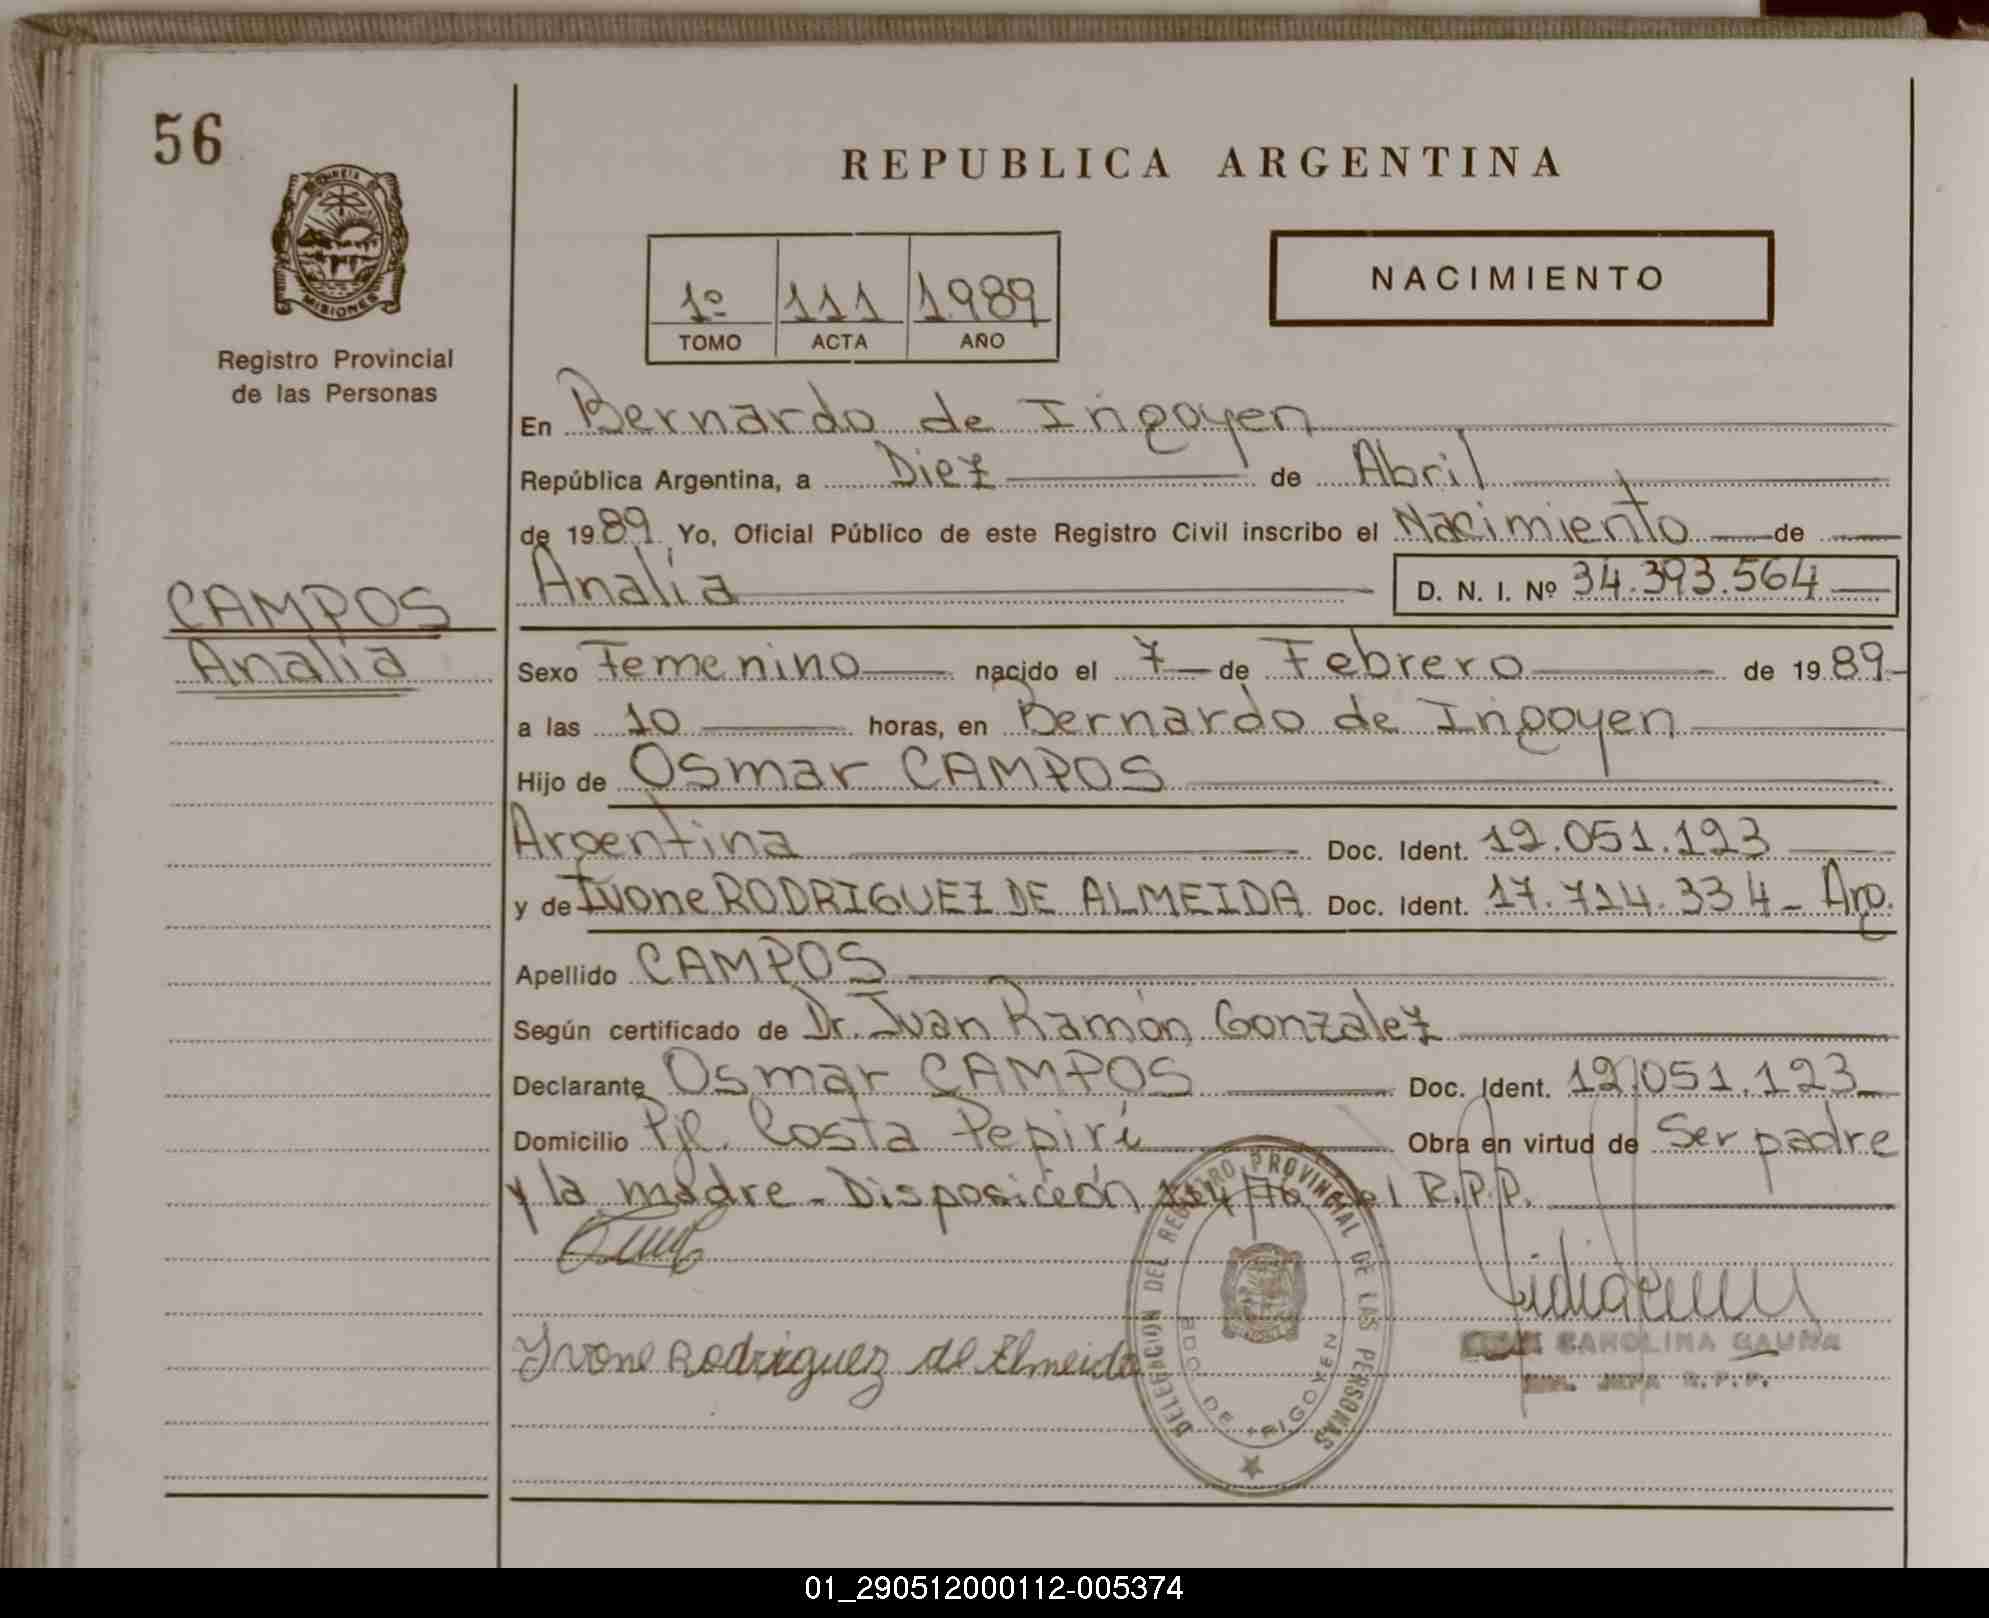 56
PROVINCIA DE
MISIONES
Registro Provincial
de las Personas
REPUBLICA ARGENTINA
1º 111 1989
TOMO ACTA AÑO
NACIMIENTO
En Bernardo de Irigoyen
República Argentina, a Diez de Abril
de 1989 Yo, Oficial Público de este Registro Civil inscribo el Nacimiento de
Analía D. N. I. Nº 34.393.564
CAMPOS
Analía
Sexo Femenino nacido el 7 de Febrero de 1989
a las 10 horas, en Bernardo de Irigoyen
Hijo de Osmar CAMPOS
Argentina Doc. Ident. 12.051.123
y de Ivone RODRIGUEZ DE ALMEIDA Doc. Ident. 17.714.334 - Arg.
Apellido CAMPOS
Según certificado de Dr. Juan Ramón Gonzalez
Declarante Osmar CAMPOS Doc. Ident. 12.051.123
Domicilio Pje. Costa Pepirí Obra en virtud de Ser padre
y la madre - Disposición del R.P.P.
Yvone Rodriguez de Almeida
DELEGACION DEL REGISTRO PROVINCIAL DE LAS PERSONAS
BDO. DE IRIGOYEN
CAROLINA GAUNA
JEFA R.P.P.
01_290512000112-005374